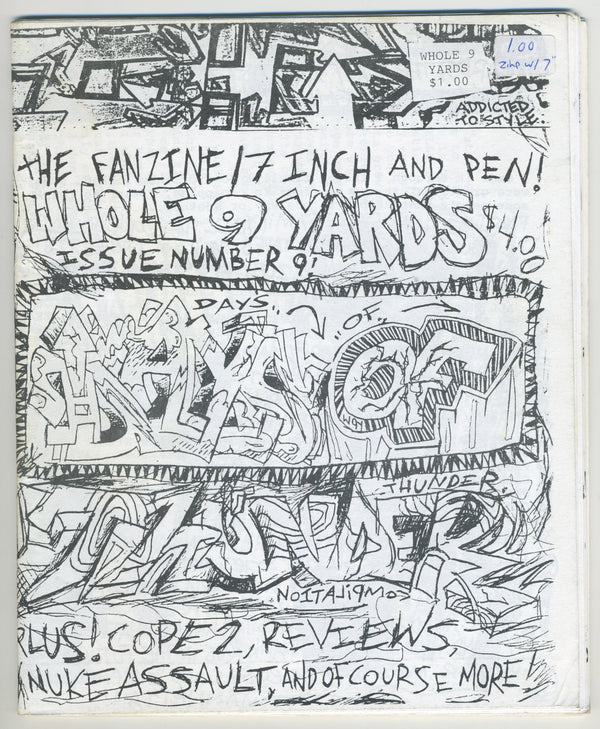 WHOLE 9
YARDS
$1.00
1.00
Zine w/ 7"
ADDICTED
TO STYLE.
THE FANZINE/7 INCH AND PEN!
WHOLE 9 YARDS $4.00
ISSUE NUMBER 9!
DAYS.. ..OF..
DAYS OF
THUNDER.
THUNDER
NOITALIPMOC
PLUS! COPE 2, REVIEWS,
NUKE ASSAULT, AND OF COURSE MORE!